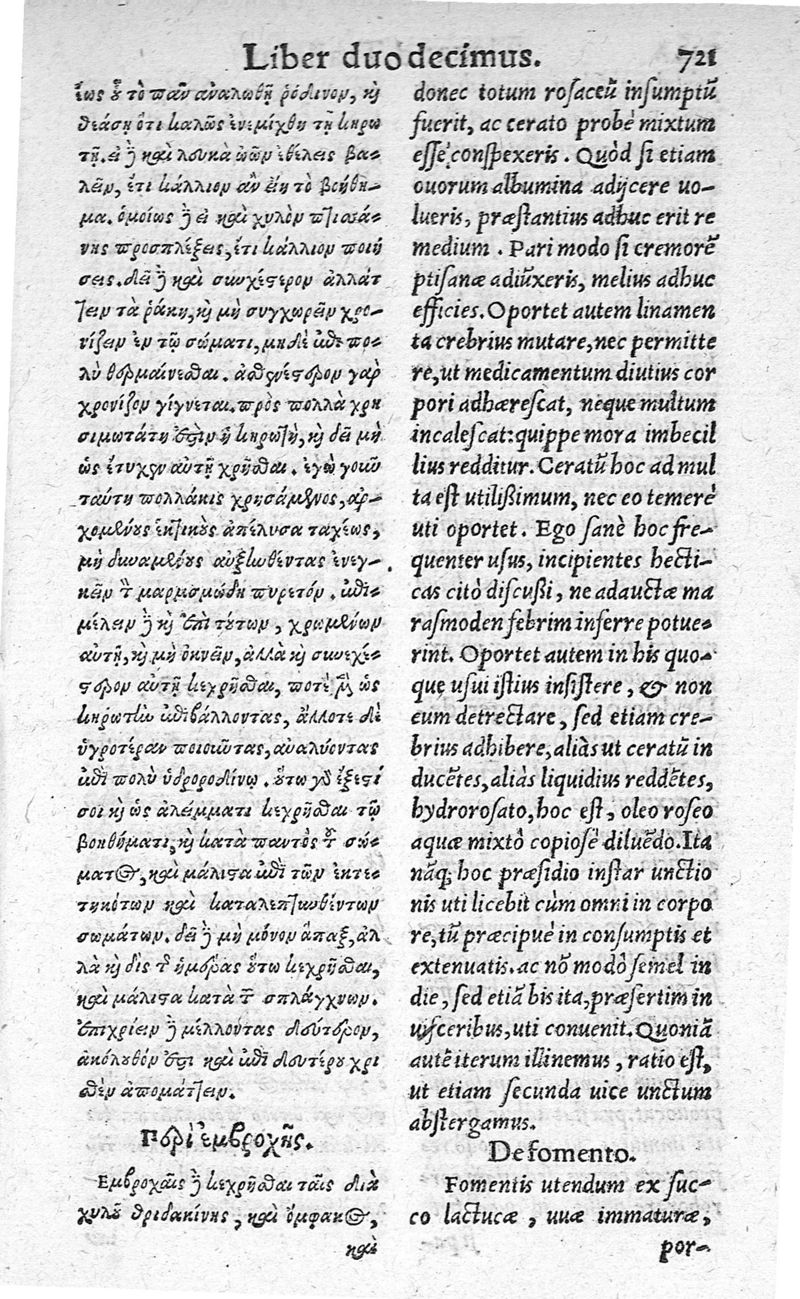 Liber duodecimus. 721
ἕως ὃ τὸ πᾶν ἀναλωθῇ ῥόδινον, κὴ
θεάσῃ ὅτι καλῶς ἐνεμίχθη τῇ κηρω
τῇ. εἰ ἢ καὶ λευκὰ ὠῶν ἐθέλεις βα-
λεῖν, ἔτι κάλλιον ἂν εἴη τὸ βοήθη-
μα. ὁμοίως ἢ εἰ καὶ χυλὸν πτισά-
νης προσπλέξεις, ἔτι κάλλιον ποιή
σεις. δεῖ ἢ καὶ συνεχέστερον ἀλλάτ
τειν τὰ ῥάκη, κὴ μὴ συγχωρεῖν χρο-
νίζειν ἐν τῷ σώματι, μηδὲ ἐπὶ πο-
λὺ θερμαίνεσθαι. ἀσθενέστερον γὰρ
χρονίζον γίγνεται. πρὸς πολλὰ χρη
σιμωτάτη ἐστὶν ἡ κηρωτὴ, κὴ δεῖ μὴ
ὡς ἔτυχεν αὐτῇ χρῆσθαι. ἐγὼ γοῦν
ταύτῃ πολλάκις χρησάμενος, ἀρ-
χομένους ἑκτικοὺς ἀπέλυσα ταχέως,
μὴ δυναμένους αὐξηθέντας ἐνεγ-
κεῖν τὸν μαρασμώδη πυρετόν. ἐπι-
μέλειν ἢ κὴ ἐπὶ τούτων, χρωμένων
αὐτῇ, κὴ μὴ ὀκνεῖν, ἀλλὰ κὴ συνεχέ-
στερον αὐτῇ κεχρῆσθαι, ποτὲ μὲν ὡς
κηρωτὴν ἐπιβάλλοντας, ἄλλοτε δὲ
ὑγροτέραν ποιοῦντας, ἀναλύοντας
ἐπὶ πολὺ ὑδροροδίνῳ. οὕτω γὸ ἔξεστί
σοι κὴ ὡς ἀλείμματι κεχρῆσθαι τῷ
βοηθήματι, κὴ κατὰ παντὸς τοῦ σώ-
ματος, καὶ μάλιστα ἐπὶ τῶν ἐκτε-
τηκότων καὶ καταλεπτυνθέντων
σωμάτων. δεῖ ἢ μὴ μόνον ἅπαξ, ἀλ
λὰ κὴ δὶς τῆς ἡμέρας οὕτω κεχρῆσθαι,
καὶ μάλιστα κατὰ τῶν σπλάγχνων.
ἐπιχρίειν ἢ μέλλοντας δεύτερον,
ἀκόλουθόν ἐστι καὶ ἐπὶ δευτέρου χρι
σθὲν ἀπομάττειν.
Περὶ ἐμβροχῆς.
Ἐμβροχαῖς ἢ κεχρῆσθαι ταῖς διὰ
χυλοῦ θριδακίνης, καὶ ὄμφακος,
καὶ
donec totum rosaceũ insumptũ
fuerit, ac cerato probè mixtum
esse conspexeris. Quòd si etiam
ouorum albumina adijcere uo-
lueris, præstantius adhuc erit re
medium. Pari modo si cremorẽ
ptisanæ adiũxeris, melius adhuc
efficies. Oportet autem linamen
ta crebrius mutare, nec permitte
re, ut medicamentum diutius cor
pori adhærescat, neque multum
incalescat: quippe mora imbecil
lius redditur. Ceratũ hoc ad mul
ta est utilißimum, nec eo temerè
uti oportet. Ego sanè hoc fre-
quenter usus, incipientes hecti-
cas citò discussi, ne adauctæ ma
rasmoden febrim inferre potue-
rint. Oportet autem in his quo-
que usui istius insistere, & non
eum detrectare, sed etiam cre-
brius adhibere, aliàs ut ceratũ in
ducẽtes, aliàs liquidius reddẽtes,
hydrorosato, hoc est, oleo roseo
aquæ mixtô copiosè diluẽdo. Ita
nãq; hoc præsidio instar unctio
nis uti licebit cùm omni in corpo
re, tũ præcipuè in consumptis et
extenuatis. ac nõ modò semel in
die, sed etiã bis ita, præsertim in
uisceribus, uti conuenit. Quoniã
autẽ iterum illinemus, ratio est,
ut etiam secunda uice unctum
abstergamus.
De fomento.
Fomentis utendum ex suc-
co lactucæ, uuæ immaturæ,
por-